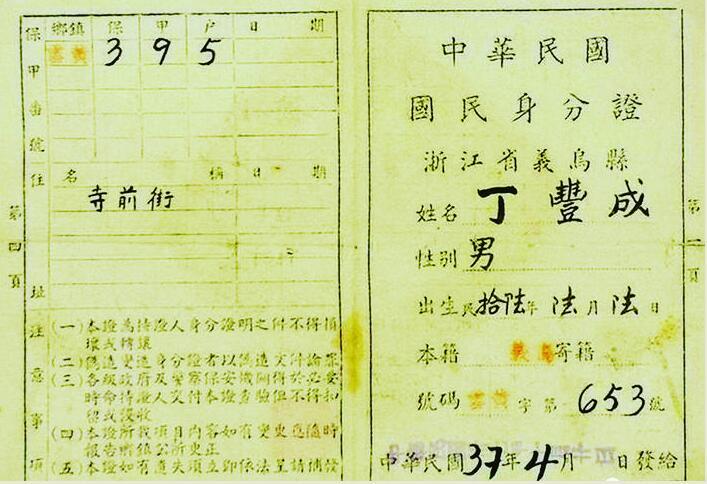 中華民國
國民身分證
浙江省義烏縣
姓名 丁豐成
性别 男
出生民拾陆年 陆月 陆日
本籍 義烏 寄籍
號碼 字第 653 號
中華民國37年4月 日發給
第一頁
保甲番號
鄉鎮 保 甲 户 日 期
3 9 5
住址
名 稱 日 期
寺前街
注意事項
(一)本證爲持證人身分證明之件不得損
壞或轉讓
(二)僞造變造身分證者以僞造文件論罪
(三)各級政府及警察保安機關得於必要
時命持證人交付本證查驗但不得扣
留或沒收
(四)本證所載項目內容如有變更應隨時
報告鄉鎮公所更正
(五)本證如有遺失項立卽依法呈請補發
第四頁